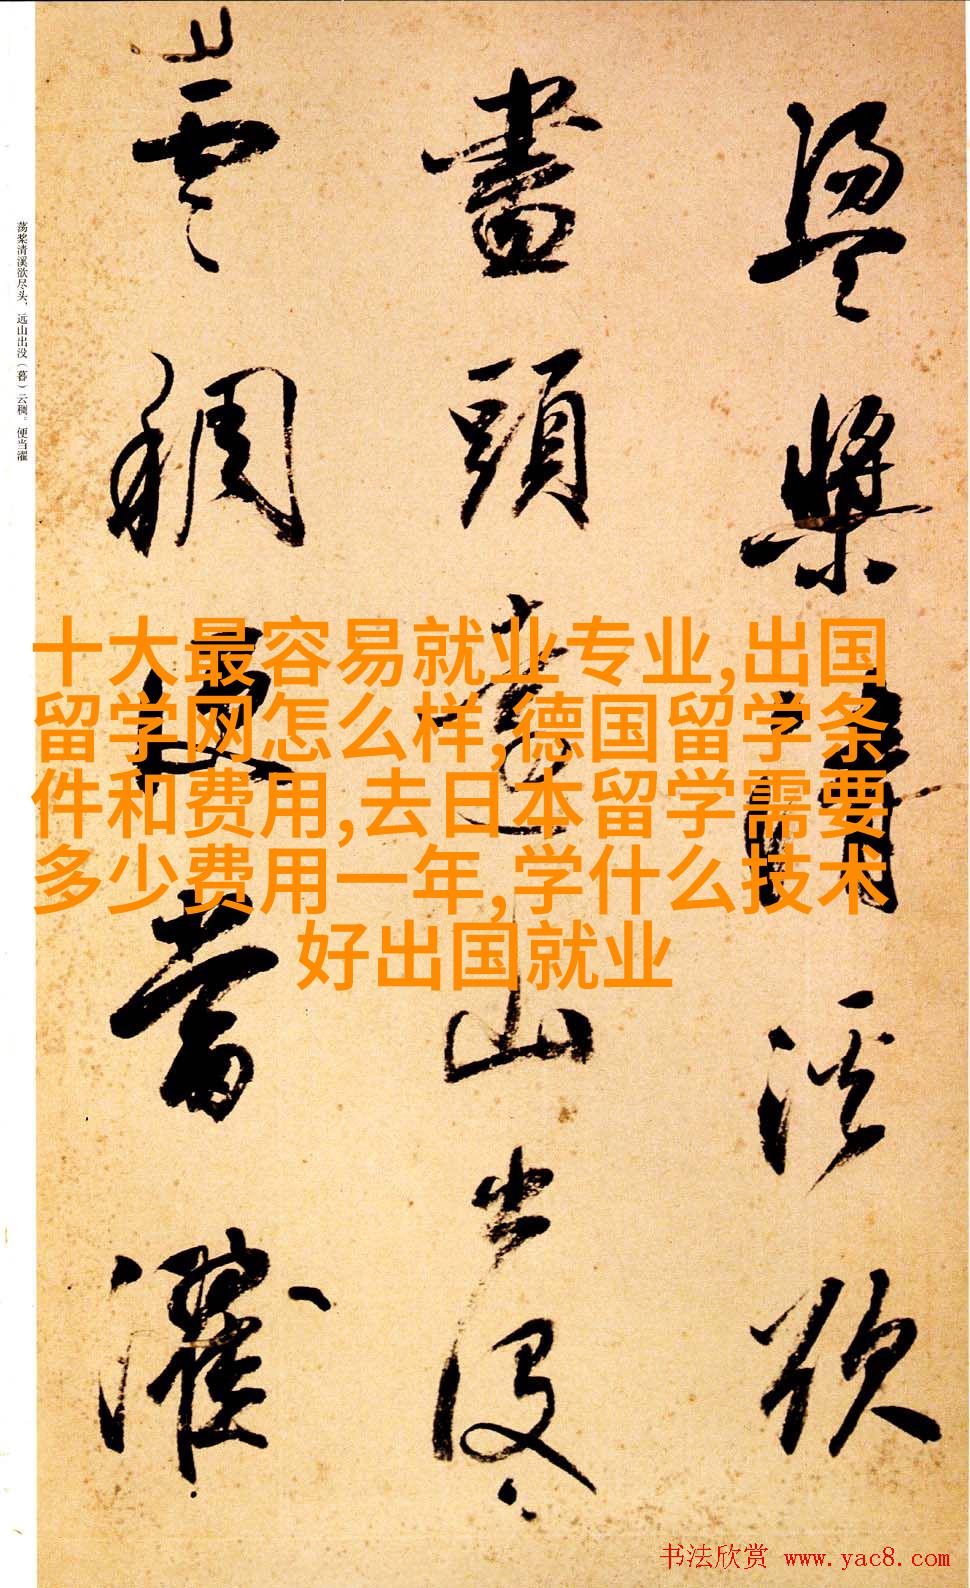 盪槳清溪欲
盡頭遠山出没
雲稠便當濯
荡桨清溪欲尽头，远山出没（暮）云稠。便当濯
十大最容易就业专业,出国
留学网怎么样,德国留学条
件和费用,去日本留学需要
多少费用一年,学什么技术
好出国就业
书法欣赏 www.yac8.com